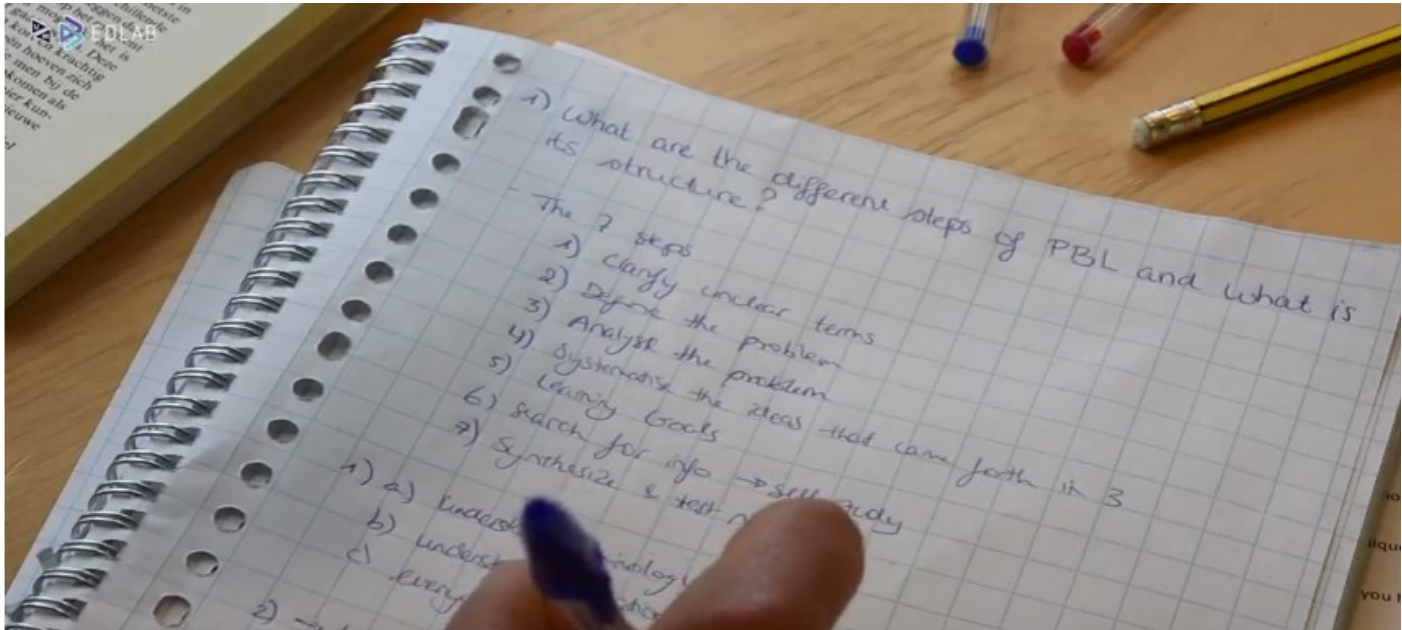 EDLAB
1) What are the different steps of PBL and what is
its structure?
- The 7 steps
1) Clarify unclear terms
2) Define the problem
3) Analyse the problem
4) Systematise the ideas that came forth in 3
5) Learning Goals
6) Search for info → self study
7) Synthesize & test
1) a)
b)
c)
2) →
krachtig
Deze
hoeven zich
men bij de
komen als
kun-
you